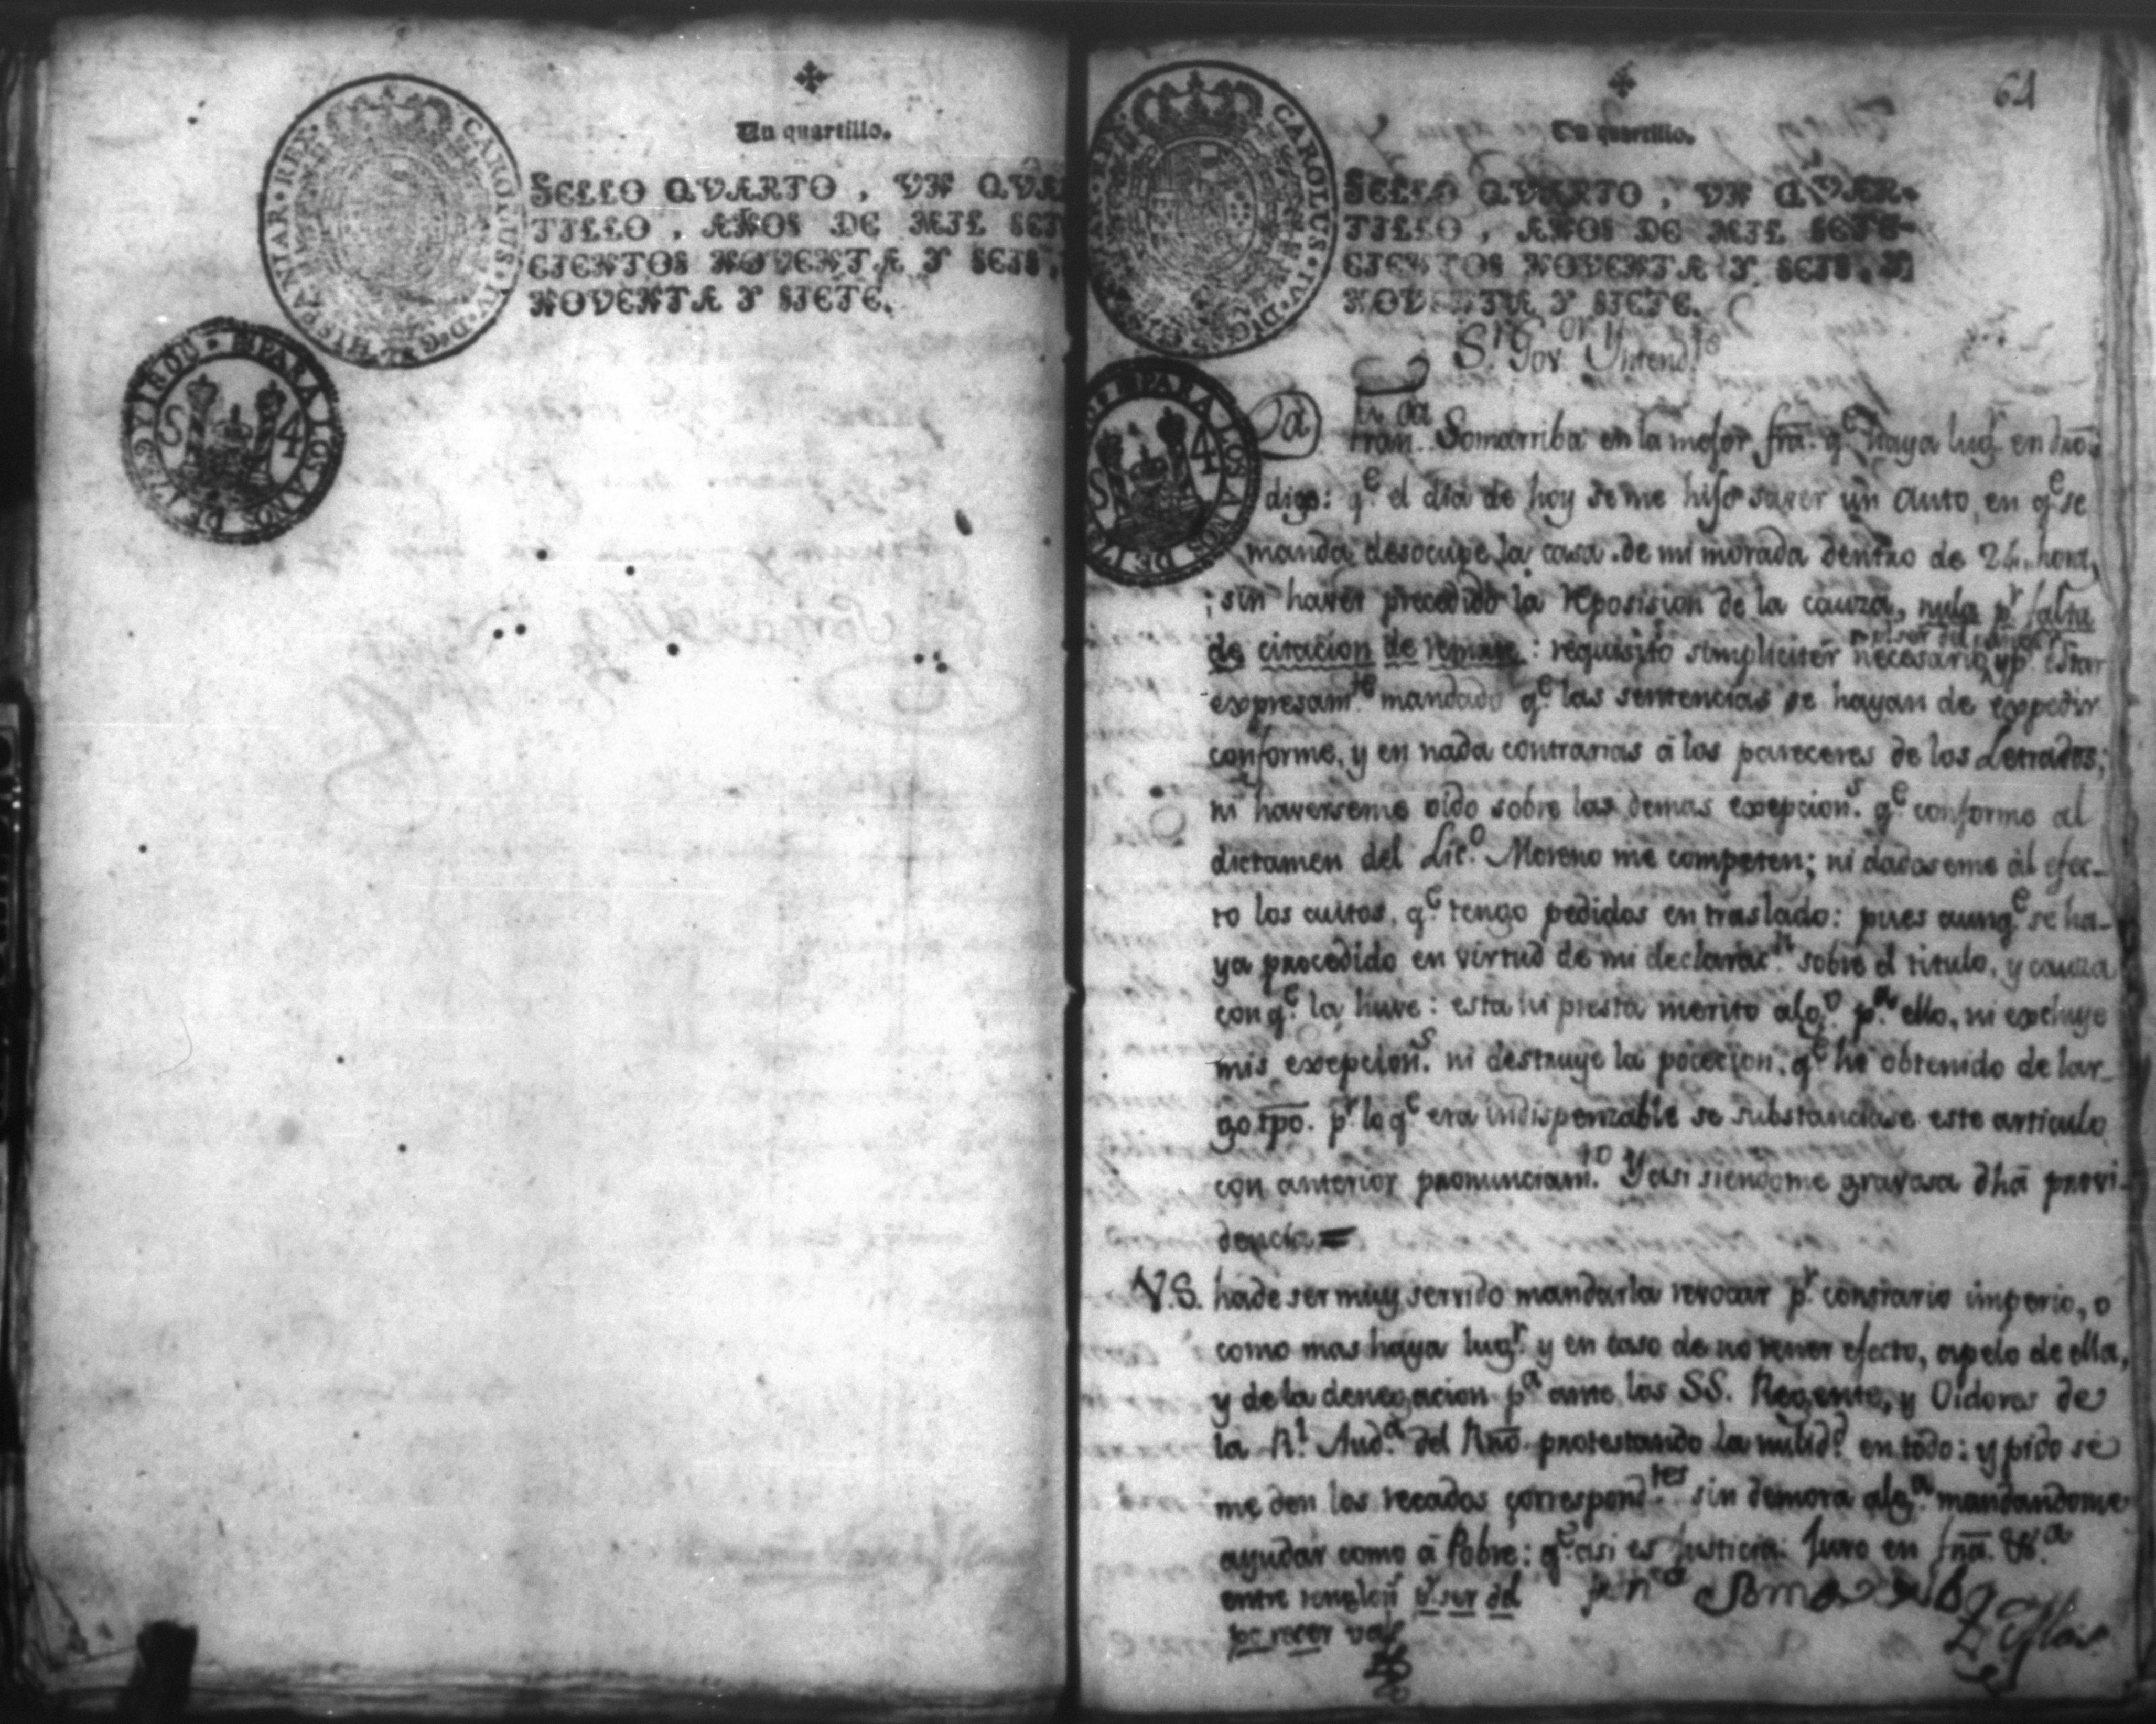 Un quartillo.
SELLO QVARTO, VN QVAR
TILLO, AÑOS DE MIL SET
CIENTOS NOVENTA Y SEIS,
NOVENTA Y SIETE.
CAROLUS·IV·D·G· HISPANIAR·REX·
PARA LOS AÑOS DE 1799 Y 1800
S 4
61
Un quartillo.
SELLO QVARTO, VN QVAR-
TILLO, AÑOS DE MIL SETE-
CIENTOS NOVENTA Y SEIS, Y
NOVENTA Y SIETE.
CAROLUS·IV·D·G· REX·
PARA LOS AÑOS DE
S 4
S.r Gov.or Y Intend.te
Fran.ca Somarriba en la mejor frã. q.e haya lug.r en dro.
digo: q.e el dia de hoy se me hiso saver un auto, en q.e se
manda desocupe la casa de mi morada dentro de 24. horas,
sin haver precedido la reposision de la cauza, nula p.r falta
de citacion de remate: requisito simpliciter necesario, p.r ser del y p.r estar
expresam.te mandado q.e las sentencias se hayan de expedir
conforme, y en nada contrarias á los pareceres de los Letrados;
ni haverseme oido sobre las demas exepcion.s q.e conforme al
dictamen del Lic.o Moreno me competen; ni dadaseme al efec-
to los autos, q.e tengo pedidos en traslado: pues aunq.e se ha-
ya procedido en virtud de mi declarac.n sobre el titulo, y cauza
con q.e la huve: esta ni presta merito alg.o p.a ello, ni excluye
mis exepcion.s ni destruye la pocecion, q.e he obtenido de lar-
go tpo. p.r lo q.e era indispenzable se substanciase este articulo
con anterior pronunciam.to Y asi siendome gravosa dhã provi-
dencia =
V.S. ha de ser muy servido mandarla revocar p.r contrario imperio, o
como mas haya lug.r y en caso de no tener efecto, apelo de ella,
y de la denegacion p.a ante los SS. Regente, y Oidores de
la R.l Aud.a del Rno. protestando la nulid.d en todo: y pido se
me den los recados correspond.tes sin demora alg.a mandandome
ayudar como á Pobre: q.e asi es Justicia. Juro en fnã. &.a
entre renglon p.r ser del
parecer vale
Fran.ca Somarriba